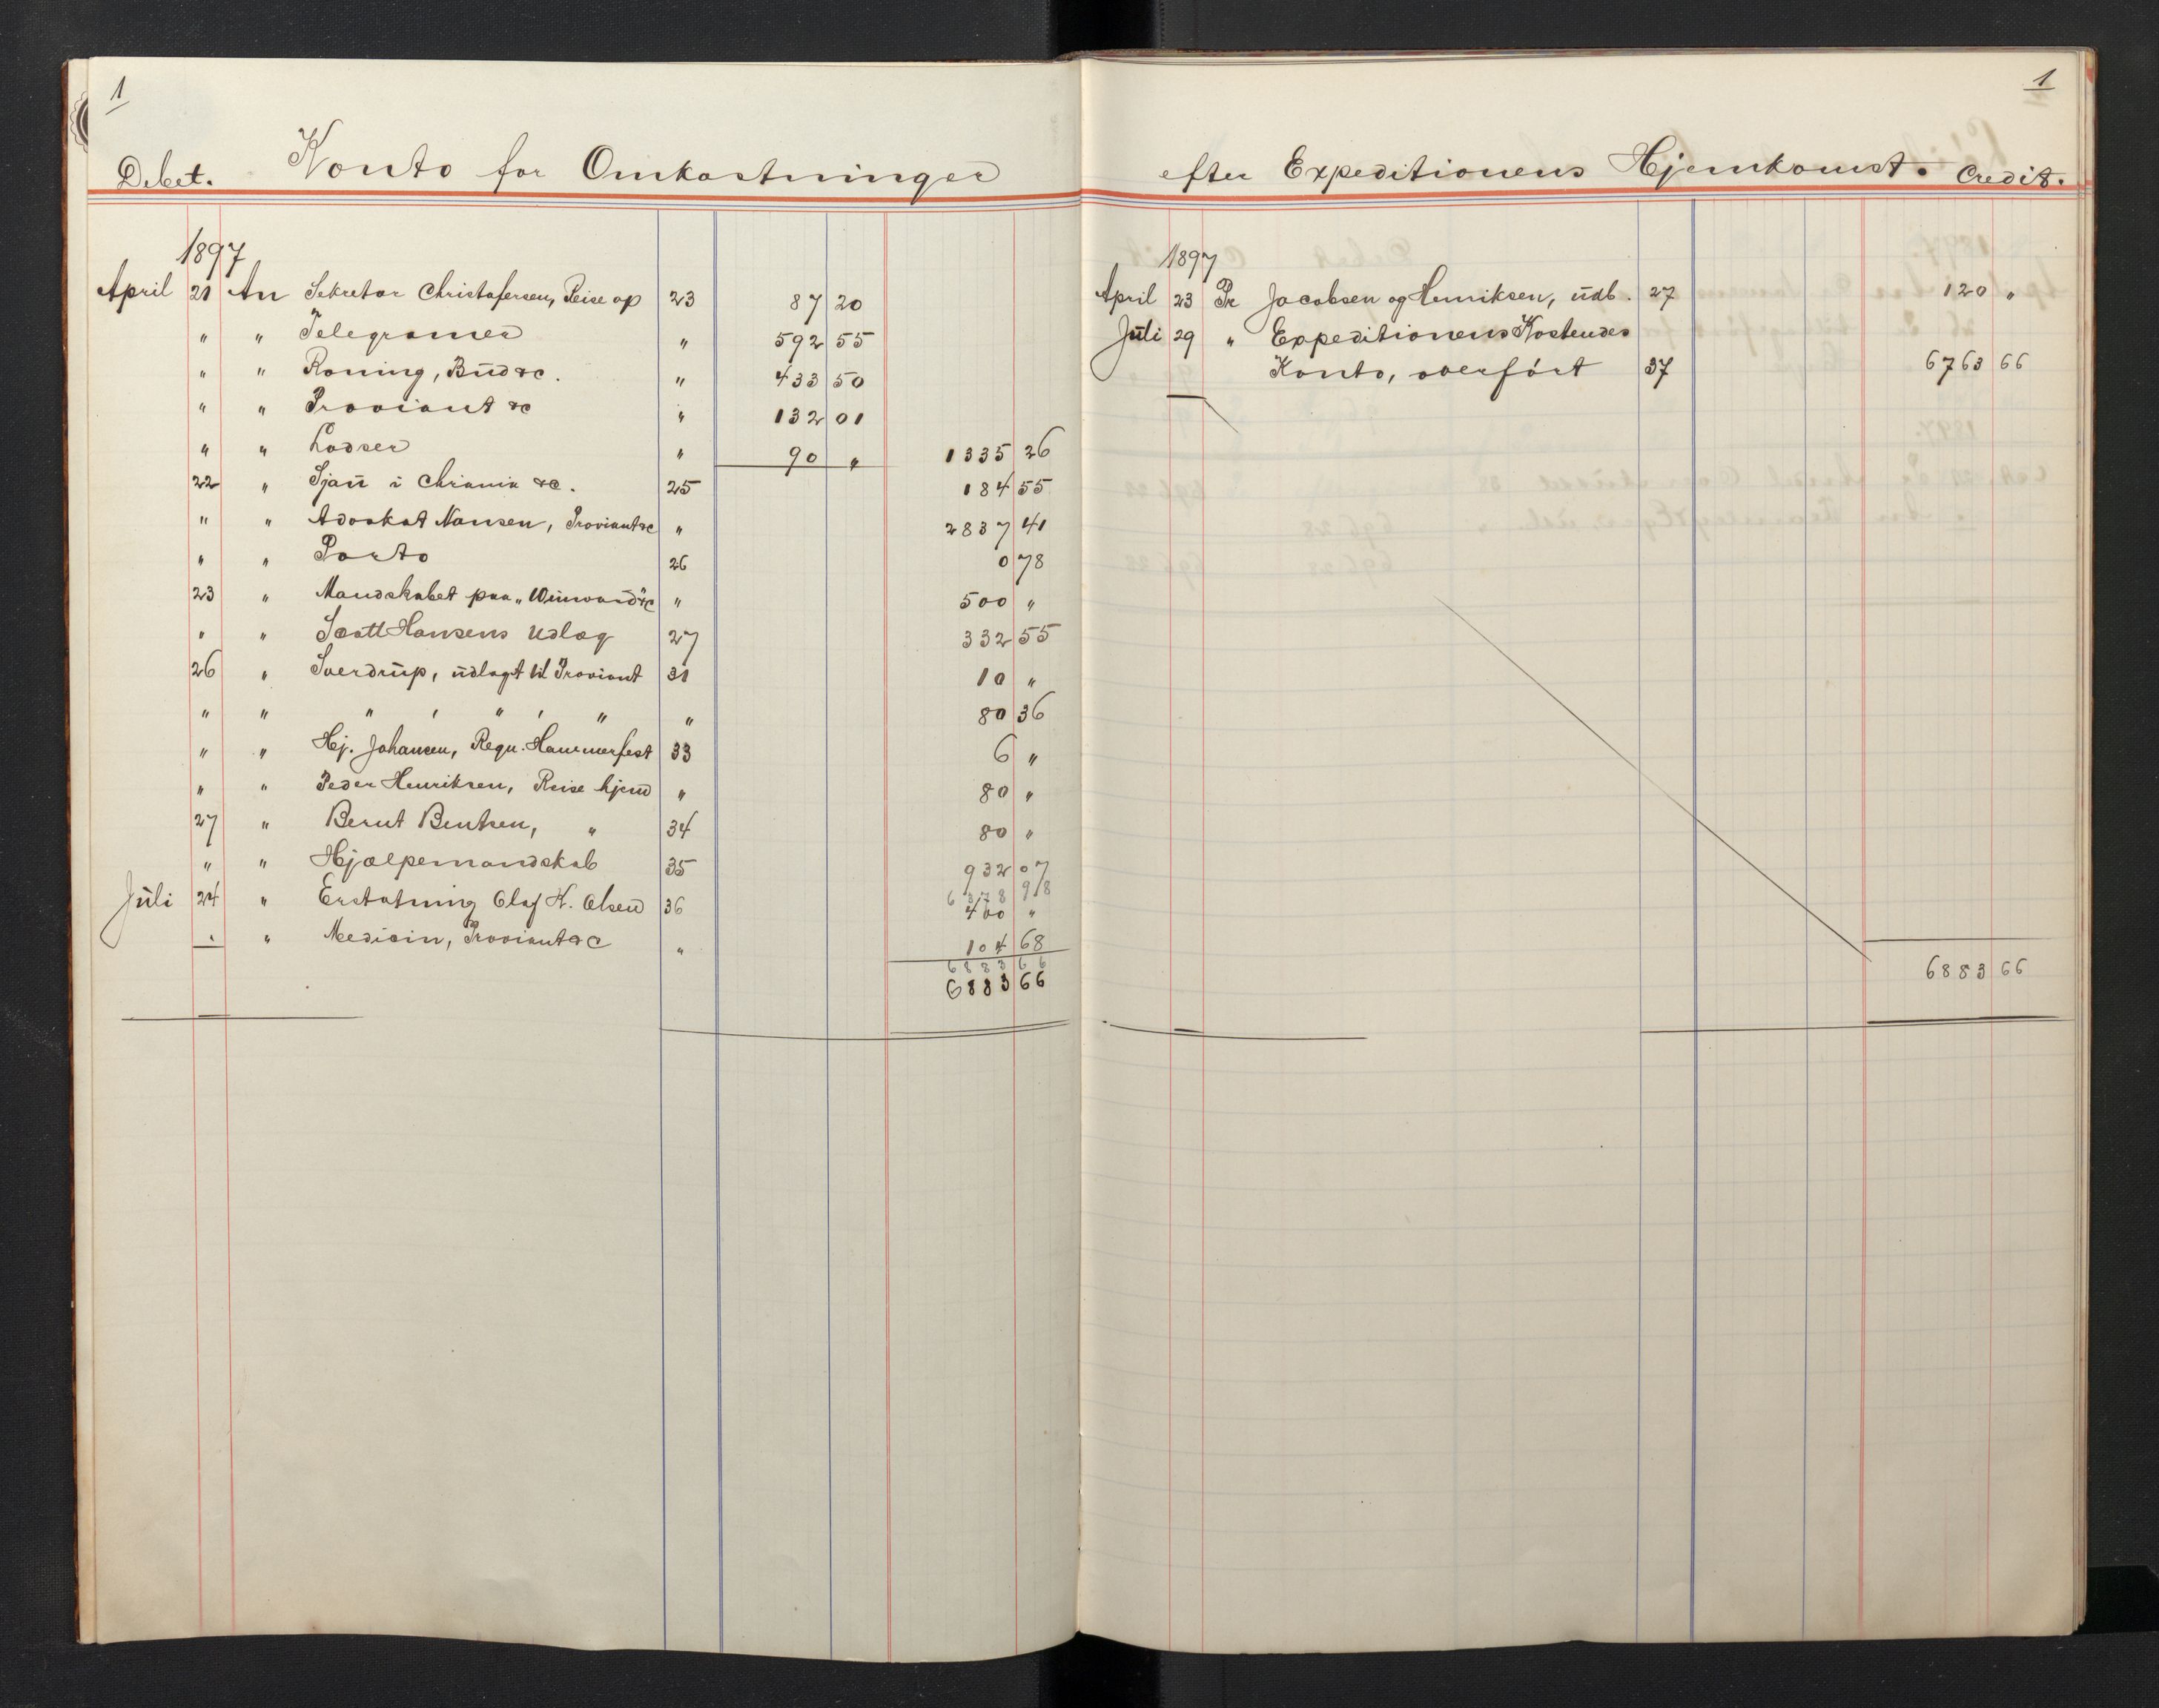 1
Debet. Konto for Omkostninger
1897
April 21 An Sekretær Christofersen, Reise op 23 87 20
" " Telegramer " 592 55
" " Roning, Bud &c. " 433 50
" " Proviant &c " 132 01
" " Lodser " 90 " 1335 26
22 " Sjau i Chriania &c. 25 184 55
" " Advokat Nansen, Proviant &c " 2837 41
" " Porto 26 0 78
23 " Mandskabet paa „Winward" &c " 500 "
" " Scott Hansens Udlæg 27 332 55
26 " Sverdrup, udlagt til Proviant 31 10 "
" " " , " , " " 80 36
" " Hj. Johansen, Regn. Hammerfest 33 6 "
" " Peder Henriksen, Reise hjem " 80 "
27 " Bernt Bentsen, " 34 80 "
" " Hjælpemandskab 35 932 07
6378 98
Juli 24 " Erstatning Olaf K. Olsen 36 400 "
" " Medicin, Proviant &c " 104 68
6883 66
6883 66
1
efter Expeditionens Hjemkomst. Credit.
1897
April 23 Pr Jacobsen og Henriksen, udb. 27 120 "
Juli 29 " Expeditionens Kostendes
Konto, overført 37 6763 66
6883 66